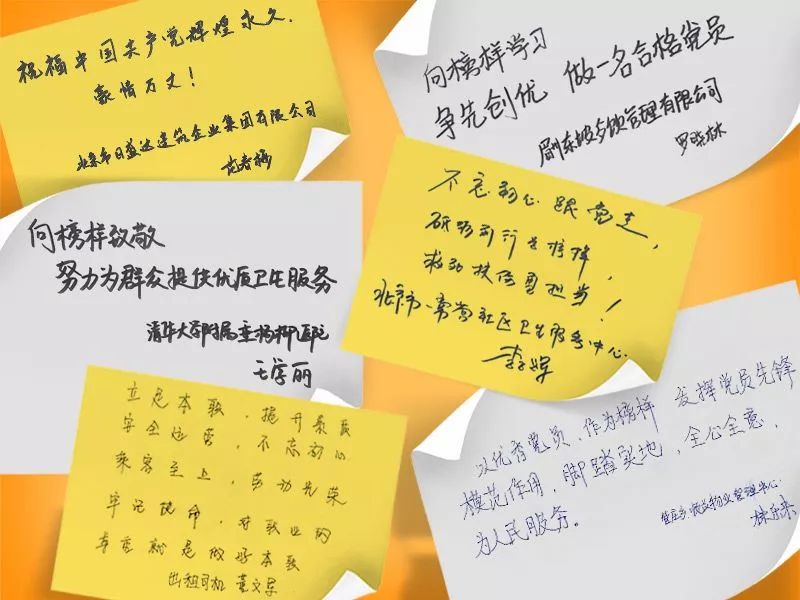 祝福中国共产党辉煌永久,
豪情万丈!
北京市日盛达建筑企业集团有限公司
向榜样学习
争先创优 做一名合格党员
眉州东坡餐饮管理有限公司
罗晓林
向榜样致敬
努力为群众提供优质卫生服务
清华大学附属垂杨柳医院
王学丽
不忘初心跟党走,
砥砺前行
救死扶伤勇担当!
社区卫生服务中心
李辉
立足本职,提升素质
安全运营,不忘初心
乘客至上,劳动光荣
牢记使命,对职业的
尊重就是做好本职
出租司机 董文军
以优秀党员,作为榜样 发挥党员先锋
模范作用,脚踏实地,全心全意,
为人民服务。
物业管理中心: